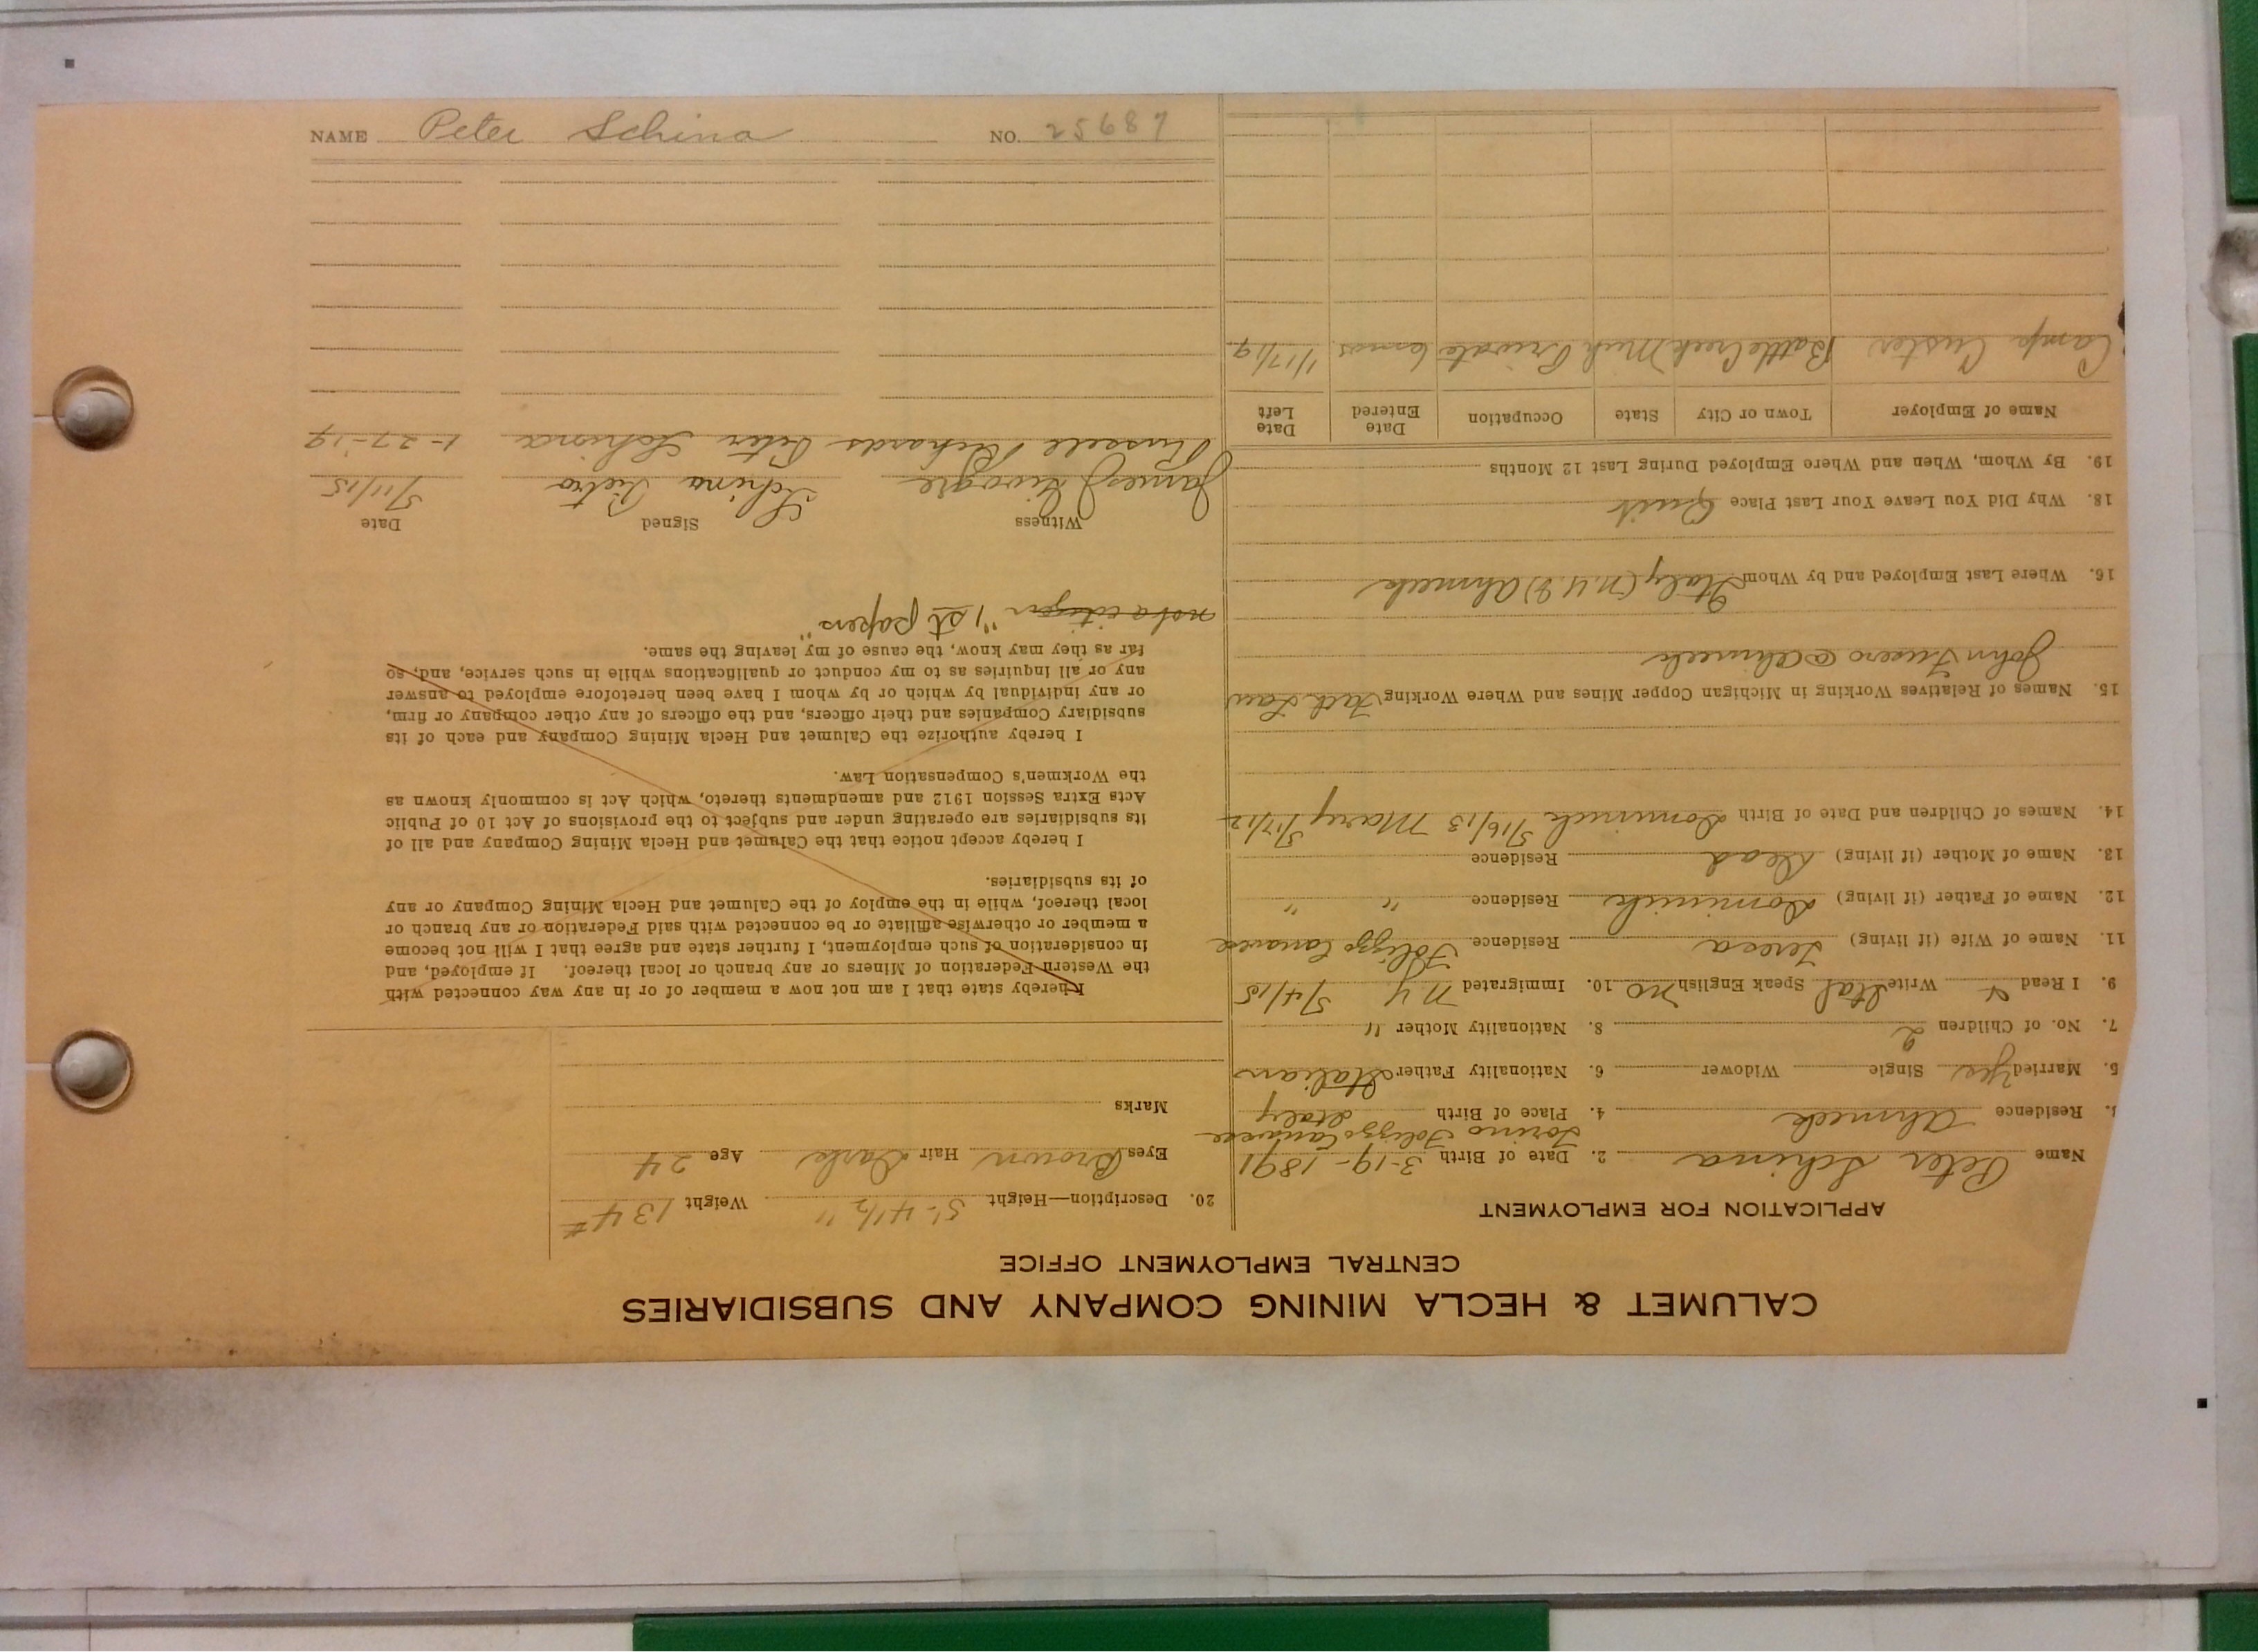 CALUMET & HECLA MINING COMPANY AND SUBSIDIARIES
CENTRAL EMPLOYMENT OFFICE
APPLICATION FOR EMPLOYMENT
Name Peter Schina 2. Date of Birth 3-19-1891
Torino Foligzo Canavese
Residence Ahmeek 4. Place of Birth Italy
5. Married Yes Single Widower 6. Nationality Father Italian
7. No. of Children 2 8. Nationality Mother "
9. I Read & Write Ital Speak English no 10. Immigrated N Y 5/4/15
11. Name of Wife (if living) Teresa Residence Foligzo Canavese
12. Name of Father (if living) Dominick Residence " "
13. Name of Mother (if living) Dead Residence
14. Names of Children and Date of Birth Dominick 5/16/13 Mary 5/17/12
15. Names of Relatives Working in Michigan Copper Mines and Where Working Fath Law
John Fusero @ Ahmeek
16. Where Last Employed and by Whom Italy (N.U.G) Ahmeek
18. Why Did You Leave Your Last Place Quit
19. By Whom, When and Where Employed During Last 12 Months
Name of Employer Town or City State Occupation Date Entered Date Left
Camp Custer Battle Creek Mich Private 6 mos 1/17/19
20. Description—Height 5'-4 1/2" Weight 134#
Eyes Brown Hair Dark Age 24
Marks
I hereby state that I am not now a member of or in any way connected with
the Western Federation of Miners or any branch or local thereof. If employed, and
in consideration of such employment, I further state and agree that I will not become
a member or otherwise affiliate or be connected with said Federation or any branch or
local thereof, while in the employ of the Calumet and Hecla Mining Company or any
of its subsidiaries.
I hereby accept notice that the Calumet and Hecla Mining Company and all of
its subsidiaries are operating under and subject to the provisions of Act 10 of Public
Acts Extra Session 1912 and amendments thereto, which Act is commonly known as
the Workmen's Compensation Law.
I hereby authorize the Calumet and Hecla Mining Company and each of its
subsidiary Companies and their officers, and the officers of any other company or firm,
or any individual by which or by whom I have been heretofore employed to answer
any or all inquiries as to my conduct or qualifications while in such service, and, so
far as they may know, the cause of my leaving the same.
not a citizen "1st papers"
Witness Signed Date
James J Schina Pietro 5/11/15
Russell Richards Peter Schina 1-27-19
NAME Peter Schina NO. 25687